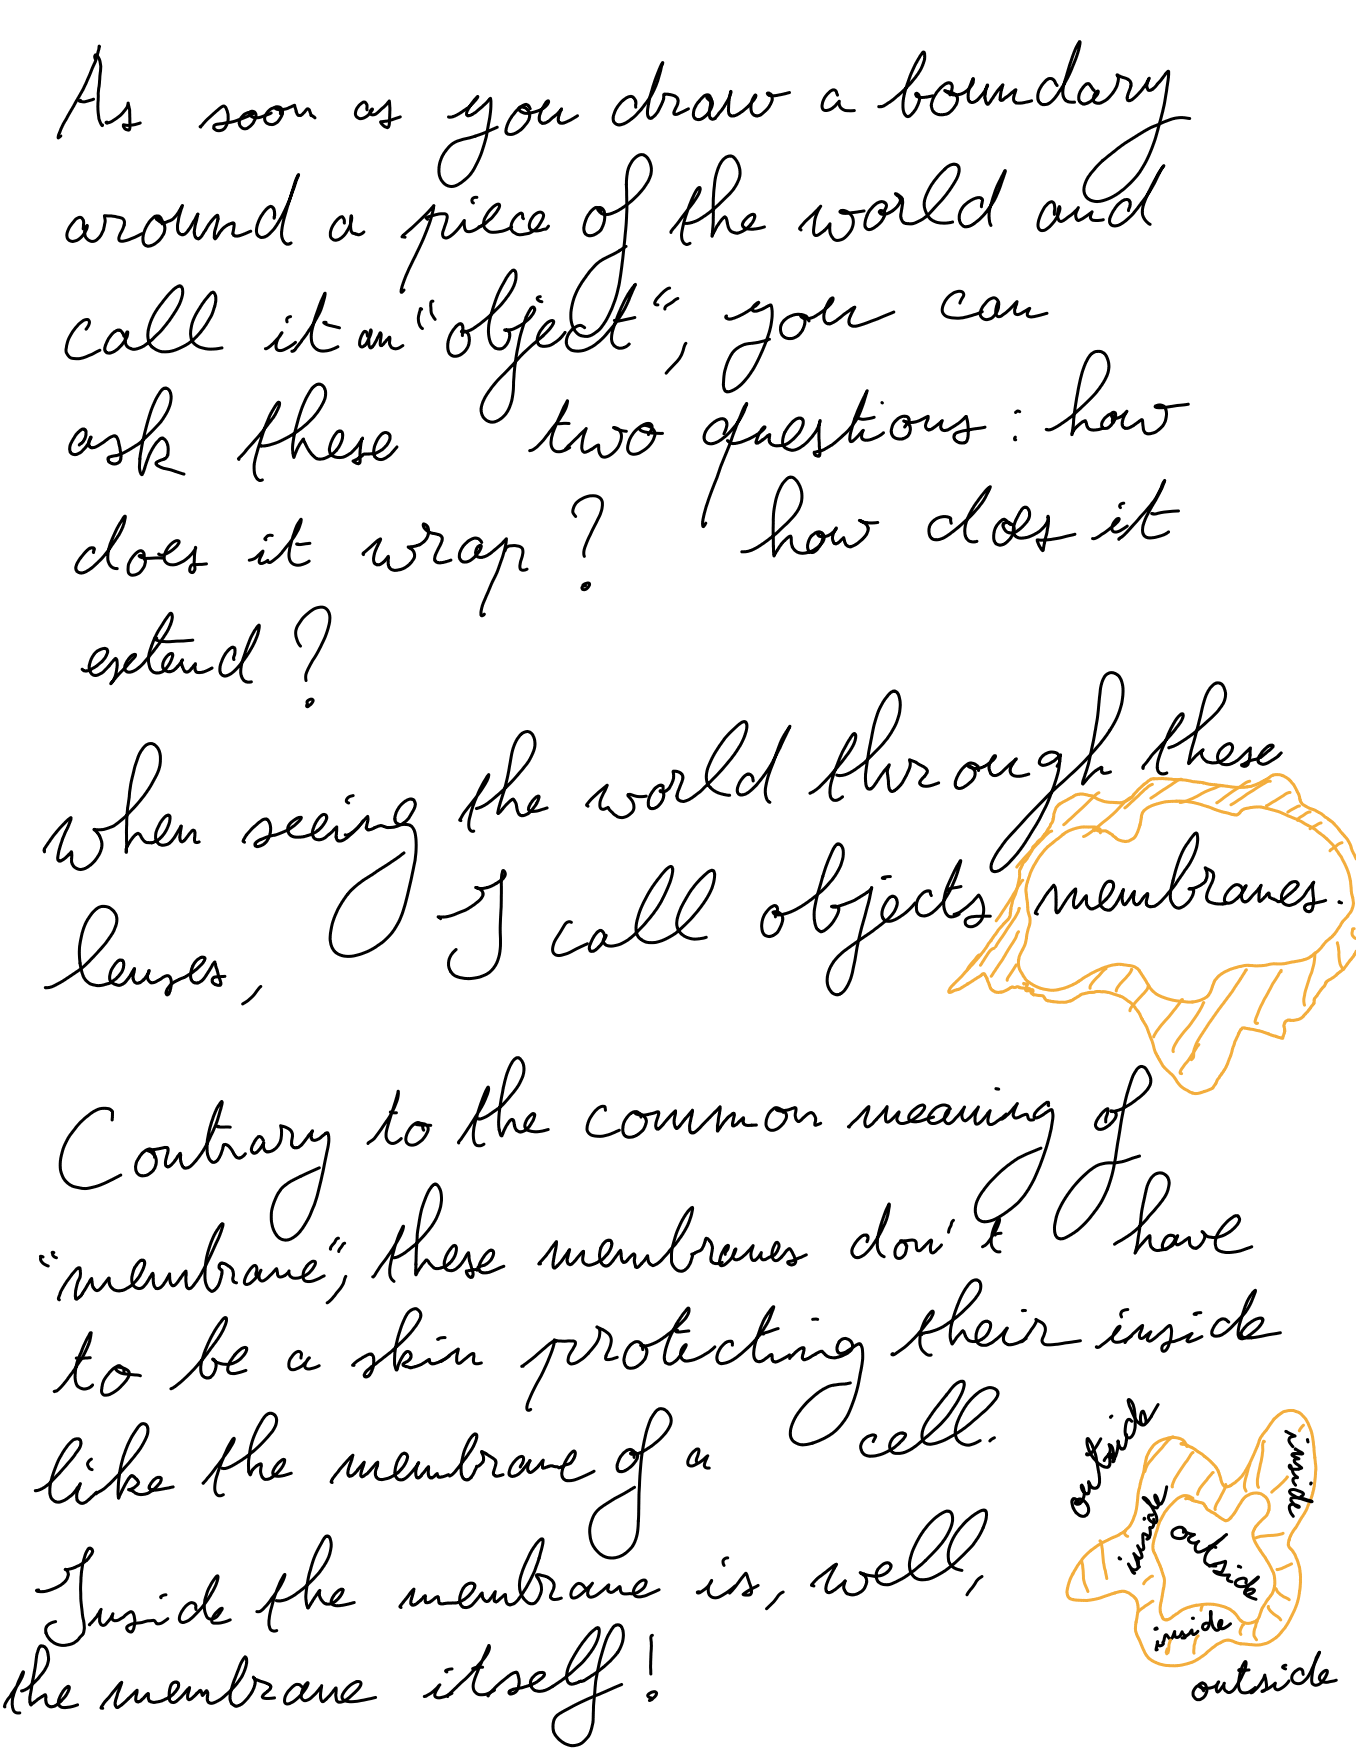 As soon as you draw a boundary
around a piece of the world and
call it an "object", you can
ask these two questions : how
does it wrap ? how does it
extend ?
When seeing the world through these
lenses, I call objects membranes.
Contrary to the common meaning of
"membrane", these membranes don't have
to be a skin protecting their inside
like the membrane of a cell.
Inside the membrane is, well,
the membrane itself !
outside
inside
inside
outside
inside
outside